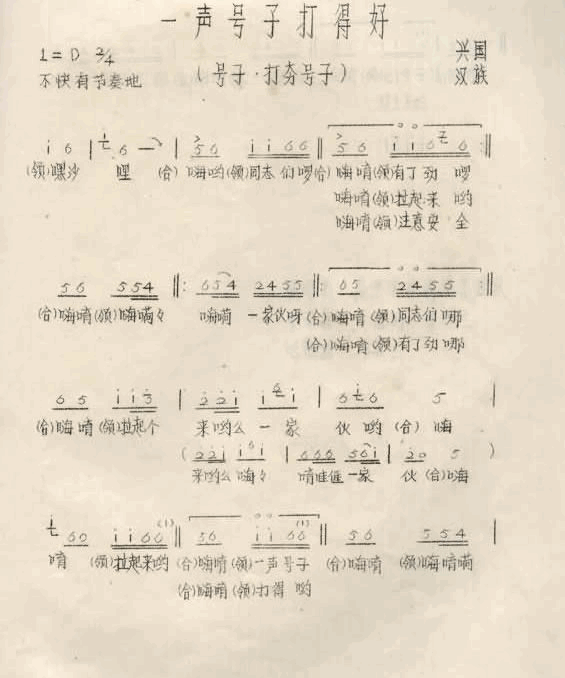 一声号子打得好
1=D 2/4
(号子·打夯号子)
兴国
不快有节奏地
汉族
i 6 | 6 — | 56 i i 66 || 56 i i 6 6 :||
(领)嘿沙 哩 (合)嗨哟(领)同志们啰(合)嗨唷(领)有了劲 啰
嗨唷(领)拉起来 哟
嗨唷(领)注意安 全
56 554 ||: 654 2455 ||: 65 2455 :||
(合)嗨唷(领)嗨嗬々 嗨嗬 一家伙呀(合)嗨唷(领)同志们哪
(合)嗨唷(领)有了劲哪
65 i i 3 | 2 2 i i i | 6 6 5 |
(合)嗨唷(领)拉起个 来哟么 一 家 伙 哟 (合) 嗨
( 2 2 i i i | 666 56i | 20 5 )
来哟么 嗨々 唷 一家 伙 (合)嗨
60 i i 66 (1) || 56 i i 66 (1) || 56 554 |
唷 (领)拉起来哟 (合)嗨唷(领)一声号子 (合)嗨唷 (领)嗨唷嗬
(合)嗨嗬(领)打得 哟